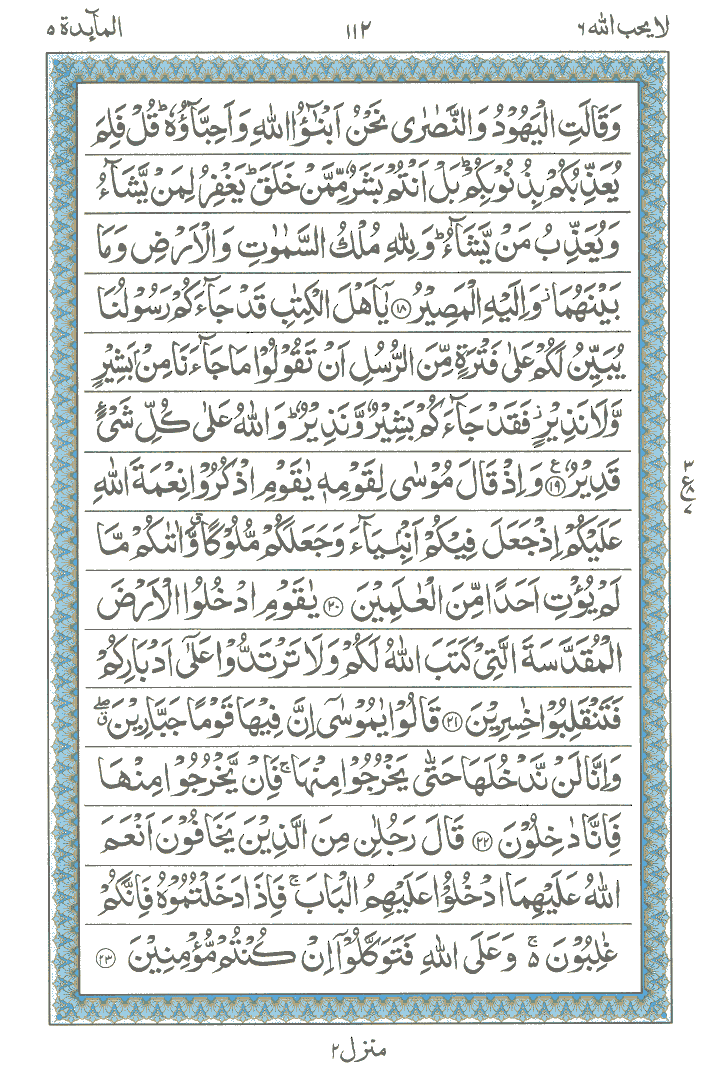 لا يحب الله ٦ ١١٢ المآىِٕدة ٥
وَقَالَتِ الْيَهُوْدُ وَالنَّصٰرٰى نَحْنُ اَبْنٰٓؤُا اللهِ وَاَحِبَّآؤُهٗ ؕ قُلْ فَلِمَ
يُعَذِّبُكُمْ بِذُنُوْبِكُمْ ؕ بَلْ اَنْتُمْ بَشَرٌ مِّمَّنْ خَلَقَ ؕ يَغْفِرُ لِمَنْ يَّشَآءُ
وَيُعَذِّبُ مَنْ يَّشَآءُ ؕ وَلِلّٰهِ مُلْكُ السَّمٰوٰتِ وَالْاَرْضِ وَمَا
بَيْنَهُمَا ؗ وَاِلَيْهِ الْمَصِيْرُ ﴿١٨﴾ يٰۤاَهْلَ الْكِتٰبِ قَدْ جَآءَكُمْ رَسُوْلُنَا
يُبَيِّنُ لَكُمْ عَلٰى فَتْرَةٍ مِّنَ الرُّسُلِ اَنْ تَقُوْلُوْا مَا جَآءَنَا مِنْۢ بَشِيْرٍ
وَّلَا نَذِيْرٍ ؗ فَقَدْ جَآءَكُمْ بَشِيْرٌ وَّنَذِيْرٌ ؕ وَاللهُ عَلٰى كُلِّ شَیْءٍ
قَدِيْرٌ ﴿١٩﴾ ع وَاِذْ قَالَ مُوْسٰى لِقَوْمِهٖ يٰقَوْمِ اذْكُرُوْا نِعْمَةَ اللهِ
عَلَيْكُمْ اِذْ جَعَلَ فِيْكُمْ اَنْۢبِيَآءَ وَجَعَلَكُمْ مُّلُوْكًا ۗ وَّاٰتٰىكُمْ مَّا
لَمْ يُؤْتِ اَحَدًا مِّنَ الْعٰلَمِيْنَ ﴿٢٠﴾ يٰقَوْمِ ادْخُلُوا الْاَرْضَ
الْمُقَدَّسَةَ الَّتِيْ كَتَبَ اللهُ لَكُمْ وَلَا تَرْتَدُّوْا عَلٰۤى اَدْبَارِكُمْ
فَتَنْقَلِبُوْا خٰسِرِيْنَ ﴿٢١﴾ قَالُوْا يٰمُوْسٰۤى اِنَّ فِيْهَا قَوْمًا جَبَّارِيْنَ ۖ
وَاِنَّا لَنْ نَّدْخُلَهَا حَتّٰى يَخْرُجُوْا مِنْهَا ۚ فَاِنْ يَّخْرُجُوْا مِنْهَا
فَاِنَّا دٰخِلُوْنَ ﴿٢٢﴾ قَالَ رَجُلٰنِ مِنَ الَّذِيْنَ يَخَافُوْنَ اَنْعَمَ
اللهُ عَلَيْهِمَا ادْخُلُوْا عَلَيْهِمُ الْبَابَ ۚ فَاِذَا دَخَلْتُمُوْهُ فَاِنَّكُمْ
غٰلِبُوْنَ ۚ٥ وَعَلَى اللهِ فَتَوَكَّلُوْۤا اِنْ كُنْتُمْ مُّؤْمِنِيْنَ ﴿٢٣﴾
٣
ع ٨
٧
منزل ٢